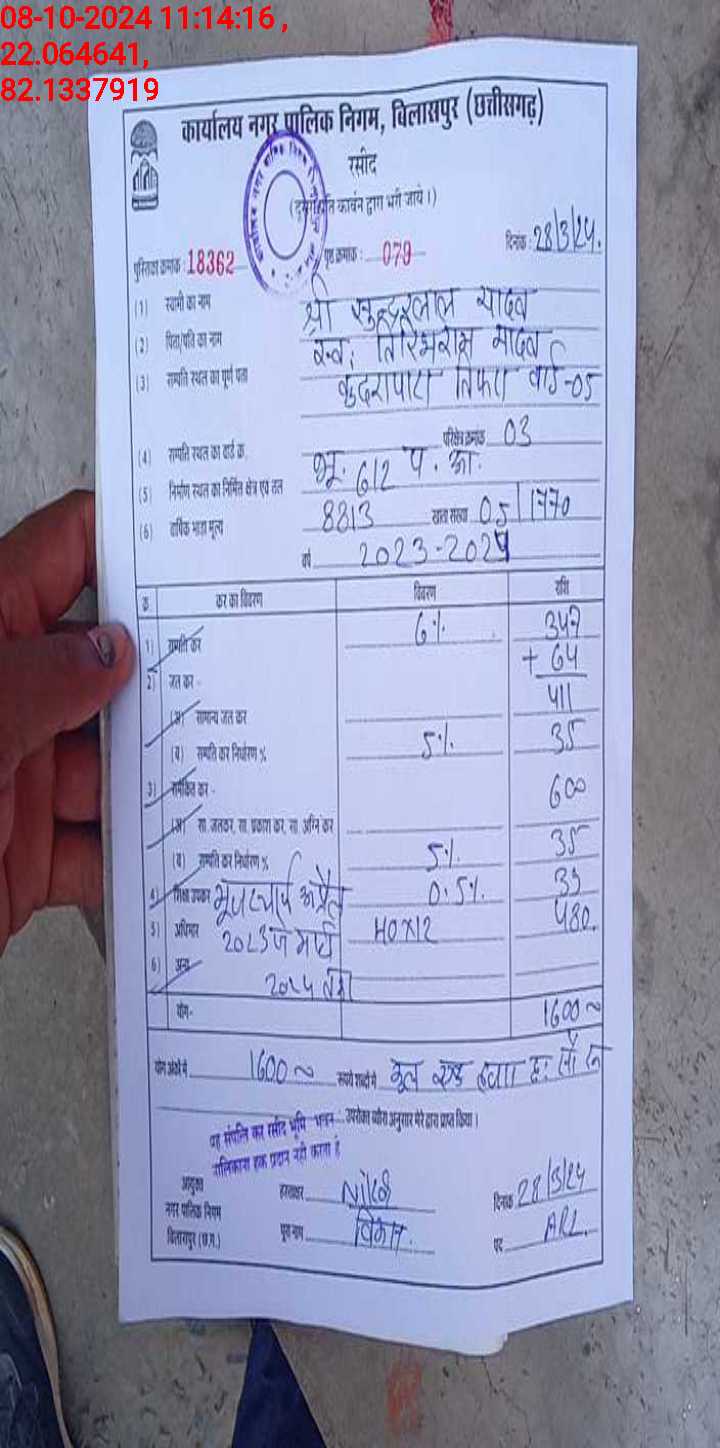 08-10-2024 11:14:16 ,
22.064641,
82.1337919
कार्यालय नगर पालिक निगम, बिलासपुर (छत्तीसगढ़)
रसीद
कार्बन द्वारा भरी जाये।)
पुस्तिका क्रमांक : 18362 पृष्ठ क्रमांक : 079 दिनांक : 28/3/24.
(1) स्वामी का नाम श्री सुन्दरलाल यादव
(2) पिता/पति का नाम यादव
(3) सम्पत्ति स्थल का पूर्ण पता कुदरापारा तिफरा वार्ड-05
(4) सम्पत्ति स्थल का वार्ड क्र. परिक्षेत्र क्रमांक 03
(5) निर्माण स्थल का निर्मित क्षेत्र एवं तल भू. 612 प. का.
(6) वार्षिक भाड़ा मूल्य 8813 खाता संख्या 05/1770
वर्ष 2023-2024
क्र. कर का विवरण विवरण राशि
1) सम्पत्ति कर 6% 347
+ 64
2) जल कर - 411
(अ) सामान्य जल कर
(ब) सम्पत्ति कर निर्धारण % 5% 35
3) समेकित कर - 600
(अ) सा. जलकर, सा. प्रकाश कर, सा. अग्नि कर
(ब) सम्पत्ति कर निर्धारण % 5% 35
4) शिक्षा उपकर अप्रैल 0.5% 33
5) अधिभार 2023 से मार्च 40x12 480.
6) अन्य 2024 तक
योग- 1600~
योग अंकों में 1600~ रूपये शब्दों में कुल एक हजार छः सौ
उपरोक्त ब्यौरा अनुसार मेरे द्वारा प्राप्त किया।
यह संपत्ति कर रसीद भूमि भवन
मालिकाना हक प्रदान नही करता है
आयुक्त
नगर पालिक निगम
बिलासपुर (छ.ग.)
हस्ताक्षर दिनांक 28/3/24
पूरा नाम पद ARI.